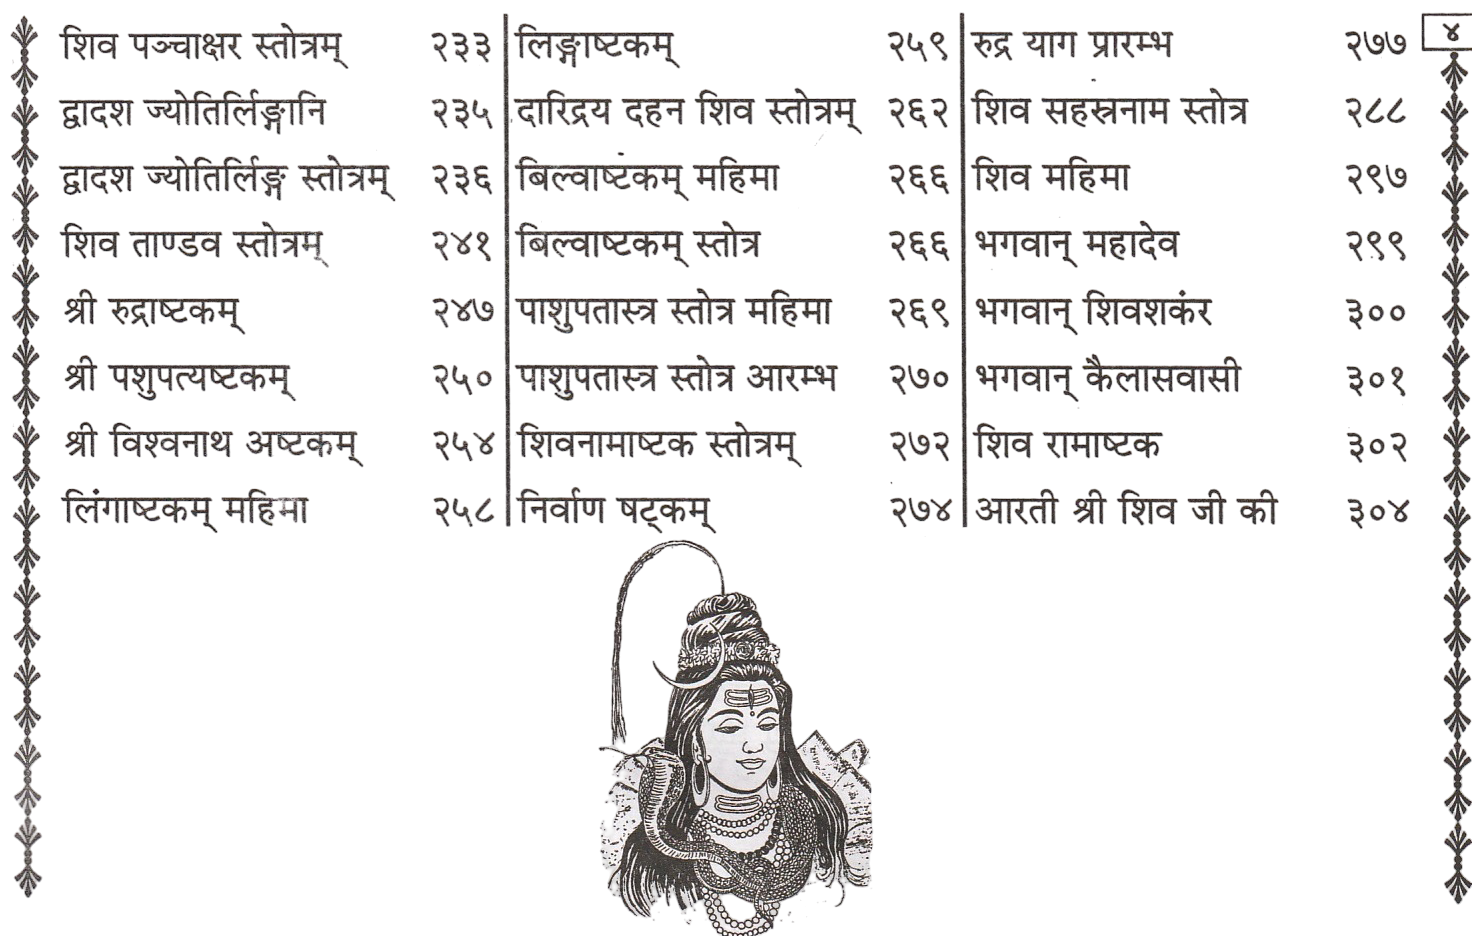 ४
शिव पञ्चाक्षर स्तोत्रम् २३३
द्वादश ज्योतिर्लिङ्गानि २३५
द्वादश ज्योतिर्लिङ्ग स्तोत्रम् २३६
शिव ताण्डव स्तोत्रम् २४१
श्री रुद्राष्टकम् २४७
श्री पशुपत्यष्टकम् २५०
श्री विश्वनाथ अष्टकम् २५४
लिंगाष्टकम् महिमा २५८
लिङ्गाष्टकम् २५९
दारिद्रय दहन शिव स्तोत्रम् २६२
बिल्वाष्टकम् महिमा २६६
बिल्वाष्टकम् स्तोत्र २६६
पाशुपतास्त्र स्तोत्र महिमा २६९
पाशुपतास्त्र स्तोत्र आरम्भ २७०
शिवनामाष्टक स्तोत्रम् २७२
निर्वाण षट्कम् २७४
रुद्र याग प्रारम्भ २७७
शिव सहस्त्रनाम स्तोत्र २८८
शिव महिमा २९७
भगवान् महादेव २९९
भगवान् शिवशकंर ३००
भगवान् कैलासवासी ३०१
शिव रामाष्टक ३०२
आरती श्री शिव जी की ३०४